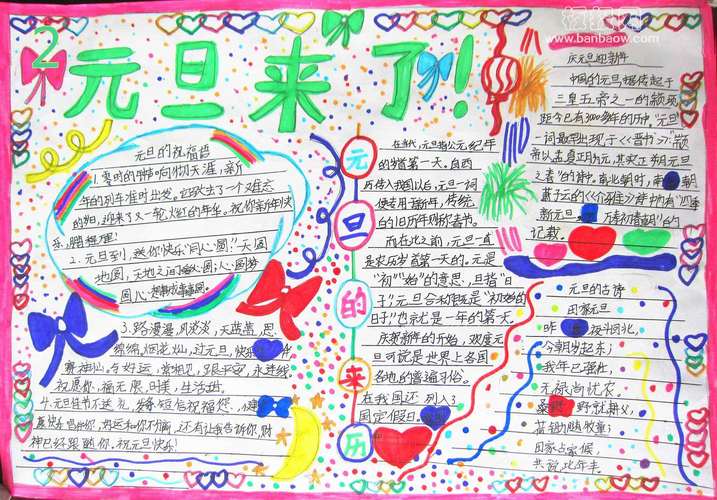 2
元旦来了!
www.banbaow.com
元旦的祝福语
1.零时的钟声响彻天涯,新
年的列车准时出发。它驶去了一个难忘
的旧,迎来了又一轮火红的年华。祝你新年快
乐
2.元旦到,送你快乐“同心圆”:天圆
地圆,天地之间
圆
3.路漫漫,风淡淡,天蓝蓝,思
绵绵,烟花灿,过元旦,快乐
永连线
祝愿你:福无限,时美,生活甜。
4.元旦佳节不送礼,发条短信祝福您。
财
神已经跟随你。祝元旦快乐!
元旦的来历
在古代,元旦指公元纪年
的岁首第一天。自西
历传入我国以后,元旦一词
便专用于新年,传统
的旧历年则称春节。
而在此之前,元旦一直
是农历岁首第一天的。元是
“初”“始”的意思,旦指“日
子”,元旦合称即是“初始的
日子”也就是一年的第一天。
庆贺新年的开始,欢度元
旦可说是世界上各国
各地的普遍习俗。
在我国还列入3
国定假日。
庆元旦迎新年
中国的元旦,据传起于
三皇五帝之一的颛顼,
距今已有3000多年的历史。“元旦”
一词最早出现于<<晋书>>:
帝以孟夏正月为元,其实正朔元旦
之春”的诗中。南北朝时,南朝
萧子云的<<介雅>>诗中也有“四季
新元旦,万寿初春朝”的
记载。
元旦的古诗
田家元旦
昨夜斗回北,
今朝岁起东;
我年已强仕,
无禄尚忧农。
桑野就耕父,
荷锄随牧童;
田家占气候,
共说此年丰。